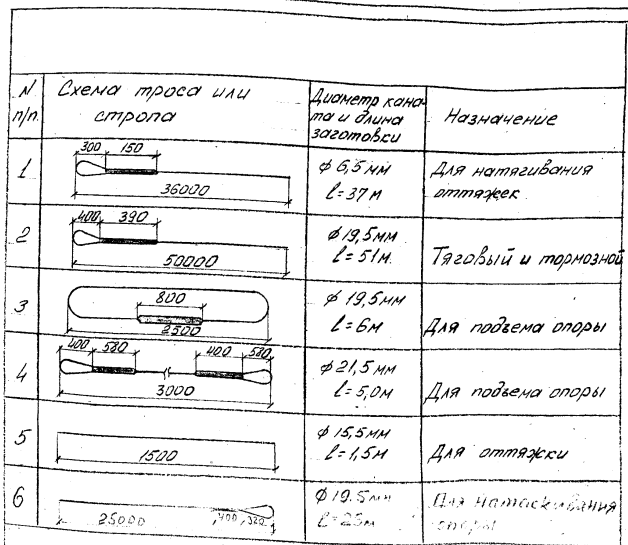 N п/п
Схема троса или стропа
Диаметр каната и длина заготовки
Назначение
1
300 150
36000
ф 6,5 мм
l=37 м
Для натягивания
оттяжек
2
400 390
50000
ф 19,5мм
l=51м
Тяговый и тормозной
3
800
2500
ф 19,5мм
l=6м
Для подъема опоры
4
400 580 400 580
3000
ф 21,5мм
l=5,0м
Для подъема опоры
5
1500
ф 15,5мм
l=1,5м
Для оттяжки
6
25000 400 320
ф 19.5мм
l=25м
Для натаскивания
опоры